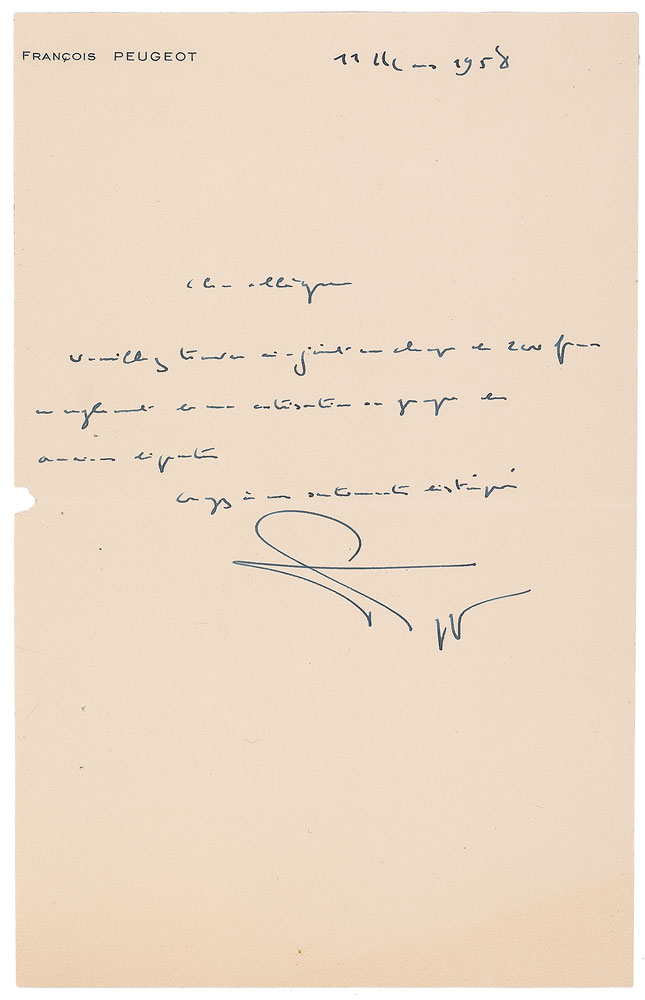 FRANÇOIS PEUGEOT
11 Mars 1958
Cher collègue
Veuillez trouver ci-joint un chèque de 2000 francs
en règlement de ma cotisation au groupe des
anciens députés
Croyez à mes sentiments distingués